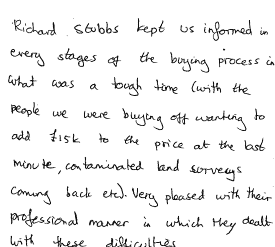 Richard Stubbs kept us informed in
every stages of the buying process in
what was a tough time (with the
people we were buying off wanting to
add £15k to the price at the last
minute, contaminated land surveys
coming back etc). Very pleased with their
professional manner in which they dealt
with these difficulties